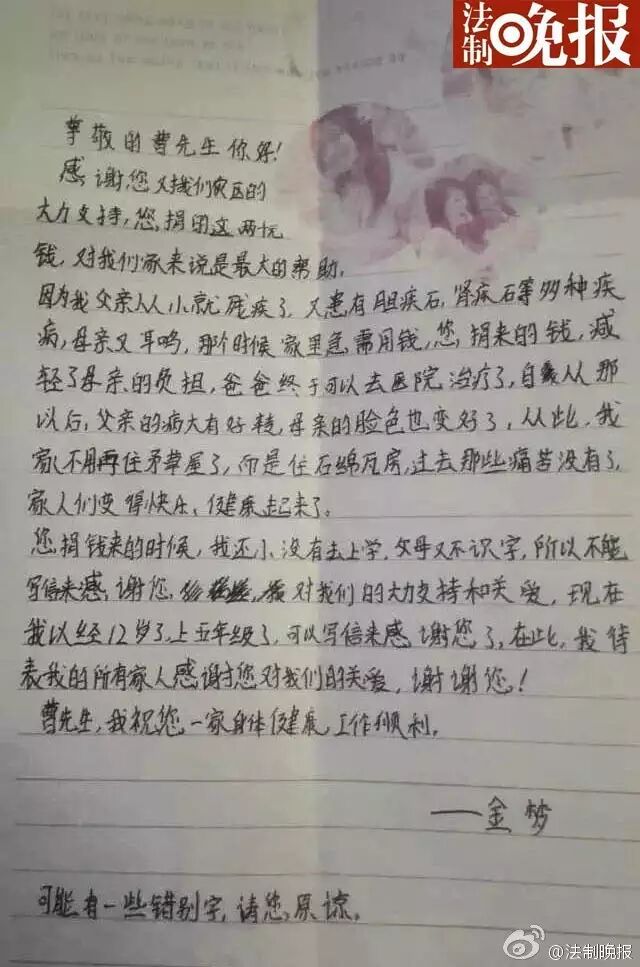 法制晚报
尊敬的曹先生你好!
感谢,您又找我们灾区的
大力支持,您,捐的这两忨
钱,对我们家来说是最大的帮助,
因为我父亲从小就残疾了,又患有胆疾石,肾疾石等多种疾
病,母亲又耳鸣,那个时候家里急需用钱,您,捐来的钱,减
轻了母亲的负担,爸爸终于可以去医院治疗了,自从那
以后,父亲的病大有好转,母亲的脸色也变好了,从此,我
家不用再住矛草屋了,而是住石绵瓦房,过去那些痛苦没有了,
家人们变得快乐、健康起来了。
您,捐钱来的时候,我还小,没有去上学,父母又不识字,所以不能
写信来感,谢您,对我们的大力支持和关爱,现在
我以经12岁了,上五年级了,可以写信来感谢您了,在此,我待
表我的所有家人感谢您对我们的关爱,谢谢您!
曹先生,我祝您一家身体健康,工作顺利。
——金梦
可能有一些错别字,请您,原谅。
@法制晚报